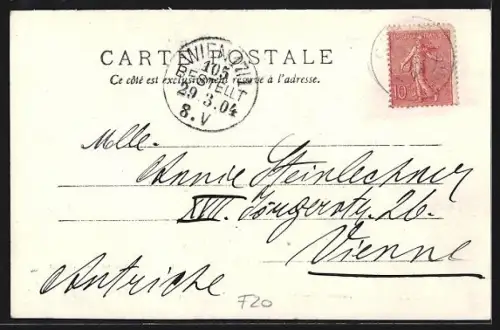 CARTE POSTALE
Ce côté est exclusivement réservé à l'adresse.
WIEN
105
BESTELLT
29 3.04
8.V
10
Mlle.
Annie Steinlechner
XVII. Jörgerstr. 26.
Vienne
Autriche
F20